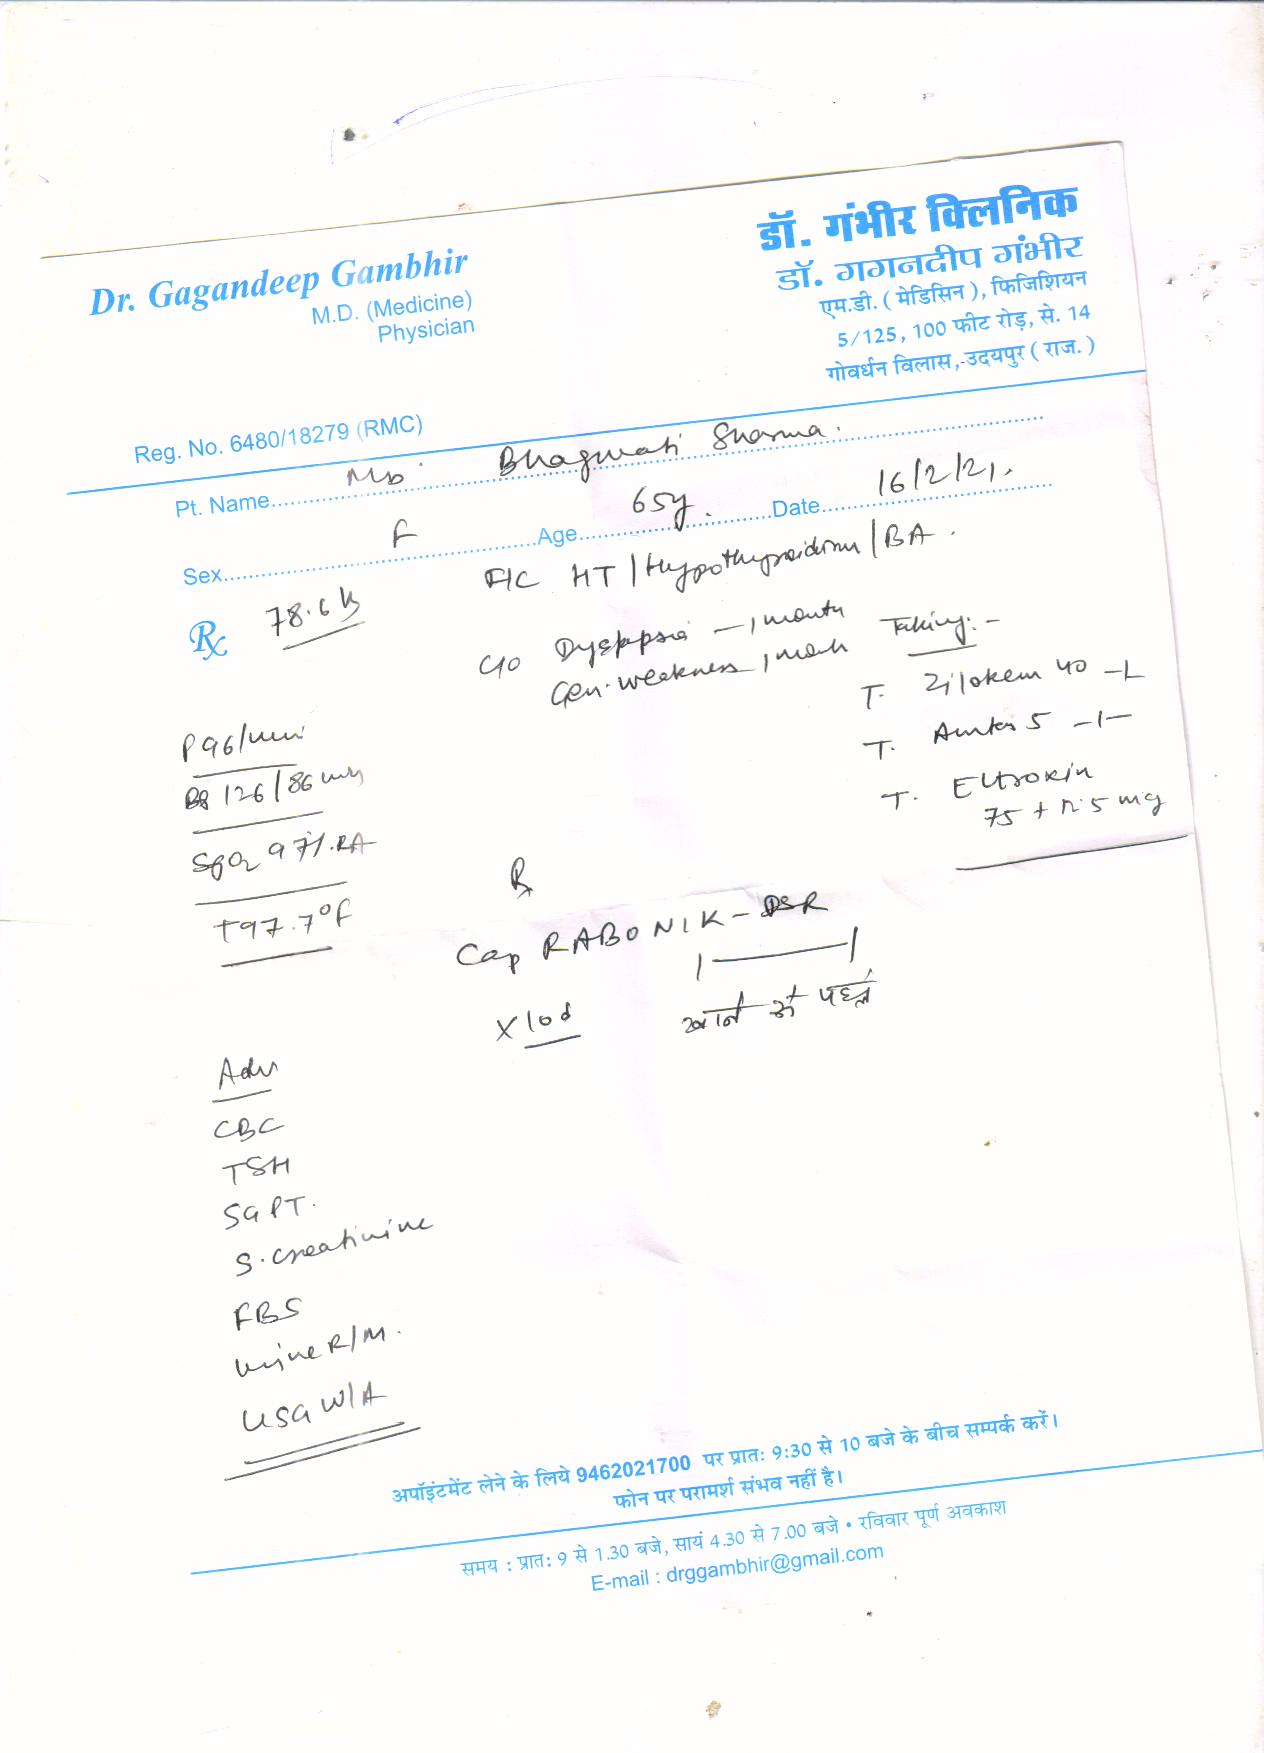 Dr. Gagandeep Gambhir
M.D. (Medicine)
Physician
Reg. No. 6480/18279 (RMC)
डॉ. गंभीर क्लिनिक
डॉ. गगनदीप गंभीर
एम.डी. ( मेडिसिन ), फिजिशियन
5/125, 100 फीट रोड़, से. 14
गोवर्धन विलास, उदयपुर ( राज. )
Pt. Name Bhagwati Sharma.
Sex F Age 65y. Date 16/2/21.
HT / Hypothyroidism / BA.
Rx 78.6 kg
C/o Dyspepsia - 1 month
Gen. weakness 1 month
Taking:-
T. Zilokem 40
T. 5 -1-
T. Eltroxin
75 + 12.5 mg
P 96/min
BP 126/86 mmHg
SpO2 97% RA
T 97.7°F
Rx
Cap RABONIK - DSR
1 — 1
X 10d
खाने से पहले
Adv
CBC
TSH
SGPT.
S. creatinine
FBS
Urine R/M.
USG W/A
अपॉइंटमेंट लेने के लिये 9462021700 पर प्रातः 9:30 से 10 बजे के बीच सम्पर्क करें।
फोन पर परामर्श संभव नहीं है।
समय : प्रातः 9 से 1.30 बजे, सायं 4.30 से 7.00 बजे • रविवार पूर्ण अवकाश
E-mail : drggambhir@gmail.com